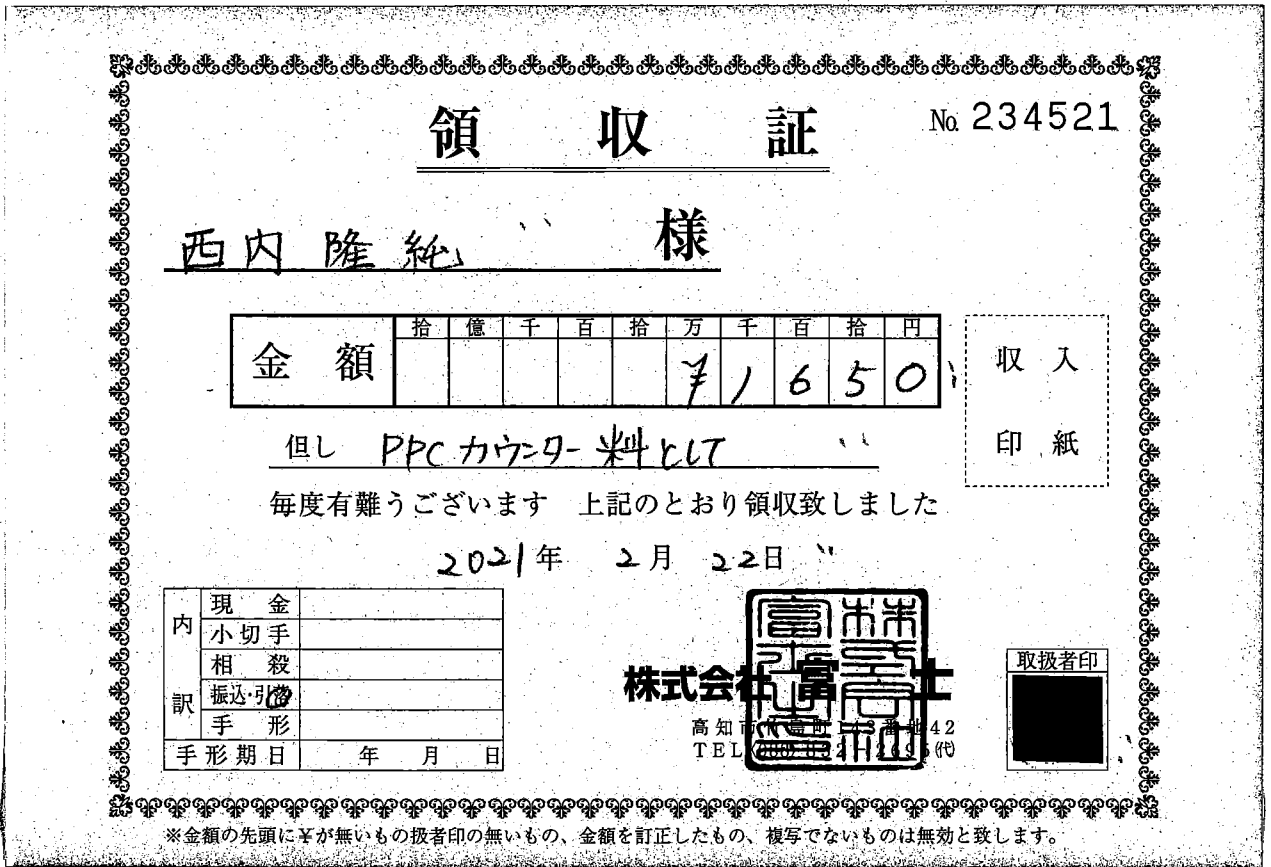 領収証
No. 234521
西内 隆純 様
拾 億 千 百 拾 万 千 百 拾 円
金額 ¥1650
収入
印紙
但し PPCカウンター料として
毎度有難うございます 上記のとおり領収致しました
2021年 2月 22日
内訳
現金
小切手
相殺
振込・引
手形
手形期日 年 月 日
株式会社 富士
高知市 島町 番地42
TEL (代)
取扱者印
※金額の先頭に¥が無いもの扱者印の無いもの、金額を訂正したもの、複写でないものは無効と致します。